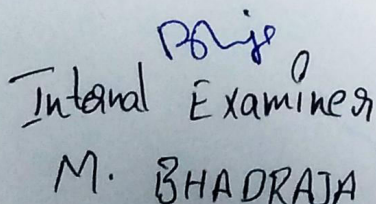 Internal Examiner
M. BHADRAJA